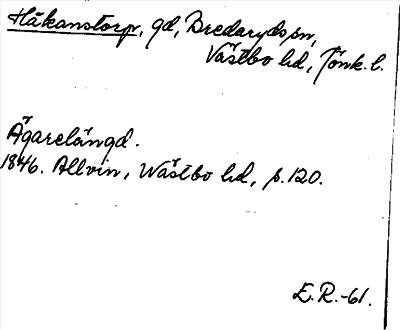 Håkanstorp, gd, Bredaryds sn,
Västbo hd, Jönk. l.
Ägarelängd.
1846. Allvin, Wästbo hd, p. 120.
E. R.-61.